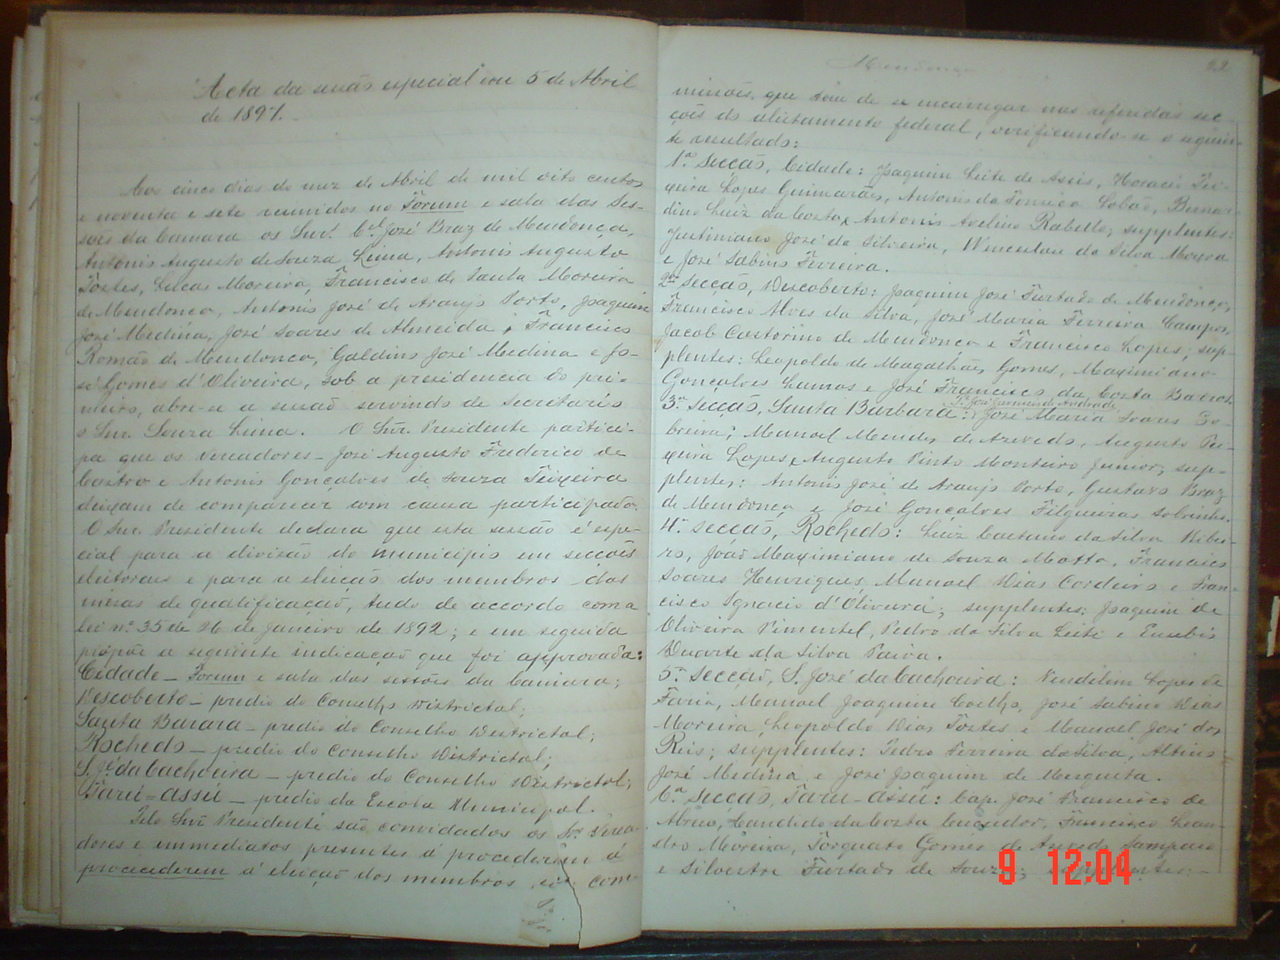 Acta da sessão especial em 5 de Abril
de 1897.
Aos cinco dias do mez de Abril de mil oito centos
e noventa e sete reunidos no Forum e sala das Ses-
sões da Camara os Snrs. Cel. José Braz de Mendonça,
Antonio Augusto de Souza Lima, Antonio Augusto
Tostes, Lucas Moreira, Francisco de Santa Moreira
de Mendonca, Antonio José de Araujo Porto, Joaquim
José Medina, José Soares de Almeida, Francisco
Romão de Mendonca, Galdino José Medina e Jo-
sé Gomes d'Oliveira, sob a presidencia do pri-
meiro, abre-se a sessão servindo de secretario
o Snr. Souza Lima. O Snr. Presidente partici-
pa que os vereadores - José Augusto Frederico de
Castro e Antonio Gonçalves de Souza Teixeira
deixam de comparecer com causa participada.
O Snr. Presidente declara que esta sessão é espe-
cial para a divisão do municipio em secções
eleitoraes e para a eleição dos membros das
mesas de qualificação, tudo de accordo com a
lei nº 35 de 26 de Janeiro de 1892; e em seguida
propõe a seguinte indicação que foi approvada:
Cidade - Forum e sala das sessões da Camara;
Descoberto - predio do Conselho Districtal;
Santa Barara - predio do Conselho Districtal;
Rochedo - predio do Conselho Districtal;
S. Jé da Cachoeira - predio do Conselho Districtal;
Tarú-Assú - predio da Escola Municipal.
Pelo Snr. Presidente são convidados os Srs. Verea-
dores e immediatos presentes á procederem á
procederem á eleição dos membros das com-
Mendonça
22
missões que tem de se encarregar nas referidas sec-
ções do alistamento federal, verificando-se o seguin-
te resultado:
1ª Secção, Cidade: Joaquim Leite de Assis, Horacio Tei-
xeira Lopes Guimarães, Antonio da Fonseca Lobão, Bernar-
dino Luiz da Costa, Antonio Avelino Rabello; supplentes:
Justiniano José da Silveira, Wenceslau da Silva Moura
e José Sabino Ferreira.
2ª Secção, Descoberto: Joaquim José Furtado de Mendonça,
Francisco Alves da Silva, José Maria Ferreira Campos,
Jacob Castorino de Mendonca e Francisco Lopes; sup-
plentes: Leopoldo de Magalhães Gomes, Maximiano
Goncalves Lemos e José Francisco da Costa Barros.
3ª Secção, Santa Barbara: José Maria
breira; Manoel Mendes de Azevedo, Augusto Tei-
xeira Lopes, Augusto Pinto Monteiro Junior; sup-
plentes: Antonio José de Araujo Porto, Gustavo Braz
de Mendonça e José Goncalves Filgueiras Sobrinho.
4ª Secção, Rochedo: Luiz Caetano da Silva Ribei-
ro, João Maximiano de Souza Motta, Francisco
Soares Henriques, Manoel Dias Cordeiro e Fran-
cisco Ignacio d'Oliveira; supplentes: Joaquim de
Oliveira Pimentel, Pedro da Silva Leite e Eusebio
Duarte da Silva Paiva.
5ª Secção, S. José da Cachoeira: Vendelim Lopes de
Faria, Manoel Joaquim Coelho, José Sabino Dias
Moreira, Leopoldo Dias Tostes e Manoel José dos
Reis; supplentes: Pedro Ferreira da Silva, Altino
José Medina e José Joaquim de Mesquita.
6ª Secção, Tarú-Assú: Cap. José Francisco de
Abreu, Candido da Costa, Francisco Lean-
dro Moreira, Torquato Gomes de Azeredo Sampaio
e Silvestre Furtado de Souza; supplentes:-
9 12:04